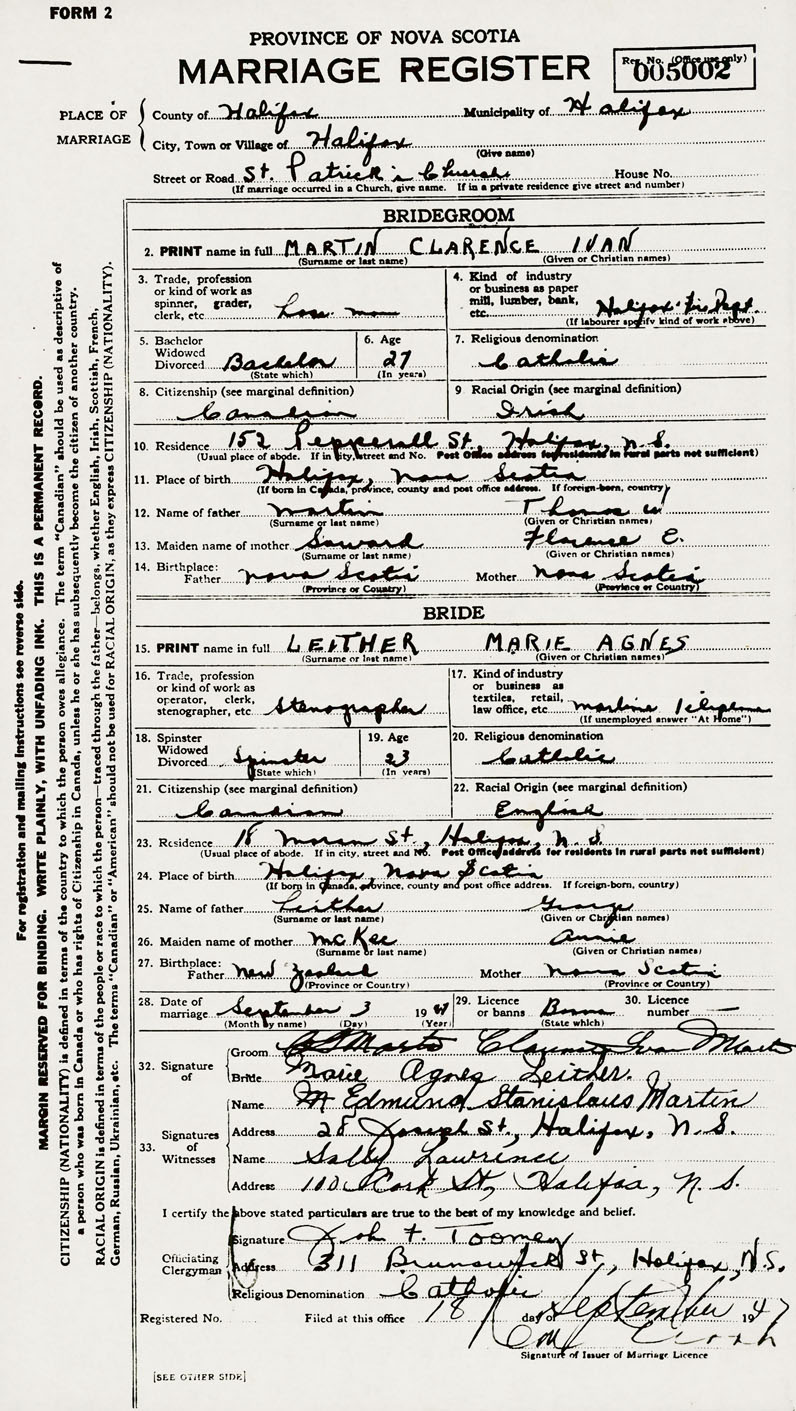 FORM 2
PROVINCE OF NOVA SCOTIA
MARRIAGE REGISTER
Reg. No. (Office use only)
005002
PLACE OF MARRIAGE
County of Halifax Municipality of Halifax
City, Town or Village of Halifax
(Give name)
Street or Road St. Patrick's Church House No.
(If marriage occurred in a Church, give name. If in a private residence give street and number)
BRIDEGROOM
2. PRINT name in full MARTIN CLARENCE IVAN
(Surname or last name) (Given or Christian names)
3. Trade, profession or kind of work as spinner, grader, clerk, etc. Hose man
4. Kind of industry or business as paper mill, lumber, bank, etc. Halifax Fire Dept.
(If labourer specify kind of work above)
5. Bachelor Widowed Divorced Bachelor
(State which)
6. Age 27
(In years)
7. Religious denomination
Catholic
8. Citizenship (see marginal definition)
Canadian
9 Racial Origin (see marginal definition)
Irish
10. Residence 152 Pepperell St., Halifax, N.S.
(Usual place of abode. If in city, street and No. Post Office address for residents in rural parts not sufficient)
11. Place of birth Halifax, Nova Scotia
(If born in Canada, province, county and post office address. If foreign-born, country)
12. Name of father Martin Thomas W
(Surname or last name) (Given or Christian names)
13. Maiden name of mother Soward Florence E.
(Surname or last name) (Given or Christian names)
14. Birthplace: Father Nova Scotia Mother Nova Scotia
(Province or Country) (Province or Country)
BRIDE
15. PRINT name in full LEITHER MARIE AGNES
(Surname or last name) (Given or Christian names)
16. Trade, profession or kind of work as operator, clerk, stenographer, etc Stenographer
17. Kind of industry or business as textiles, retail, law office, etc.
(If unemployed answer "At Home")
18. Spinster Widowed Divorced Spinster
(State which)
19. Age 23
(In years)
20. Religious denomination
Catholic
21. Citizenship (see marginal definition)
Canadian
22. Racial Origin (see marginal definition)
English
23. Residence 18 Moran St., Halifax, N.S
(Usual place of abode. If in city, street and No. Post Office address for residents in rural parts not sufficient)
24. Place of birth Halifax, Nova Scotia
(If born in Canada, province, county and post office address. If foreign-born, country)
25. Name of father Leither George
(Surname or last name) (Given or Christian names)
26. Maiden name of mother McKee Annie
(Surname or last name) (Given or Christian names)
27. Birthplace: Father New Zealand Mother Nova Scotia
(Province or Country) (Province or Country)
28. Date of marriage September 3 1947
(Month by name) (Day) (Year)
29. Licence or banns Banns
(State which)
30. Licence number —
32. Signature of
Groom Clarence Ivan Martin
Bride Marie Agnes Leither.
33. Signatures of Witnesses
Name Edmund Stanislaus Martin
Address 28 Joseph St., Halifax, N.S.
Name Sally Lawrence
Address 110 Cork St, Halifax, N.S.
I certify the above stated particulars are true to the best of my knowledge and belief.
Officiating Clergyman
Signature John F. Toomey
Address 311 Brunswick St., Halifax, N.S.
Religious Denomination Catholic
Registered No. Filed at this office 18 day of September 1947
Signature of Issuer of Marriage Licence
[SEE OTHER SIDE]
For registration and mailing instructions see reverse side.
MARGIN RESERVED FOR BINDING. WRITE PLAINLY, WITH UNFADING INK. THIS IS A PERMANENT RECORD.
CITIZENSHIP (NATIONALITY) is defined in terms of the country to which the person owes allegiance. The term "Canadian" should be used as descriptive of
a person who was born in Canada or who has rights of Citizenship in Canada, unless he or she has subsequently become the citizen of another country.
RACIAL ORIGIN is defined in terms of the people or race to which the person—traced through the father—belongs, whether English, Irish, Scottish, French,
German, Russian, Ukrainian, etc. The terms "Canadian" or "American" should not be used for RACIAL ORIGIN, as they express CITIZENSHIP (NATIONALITY).